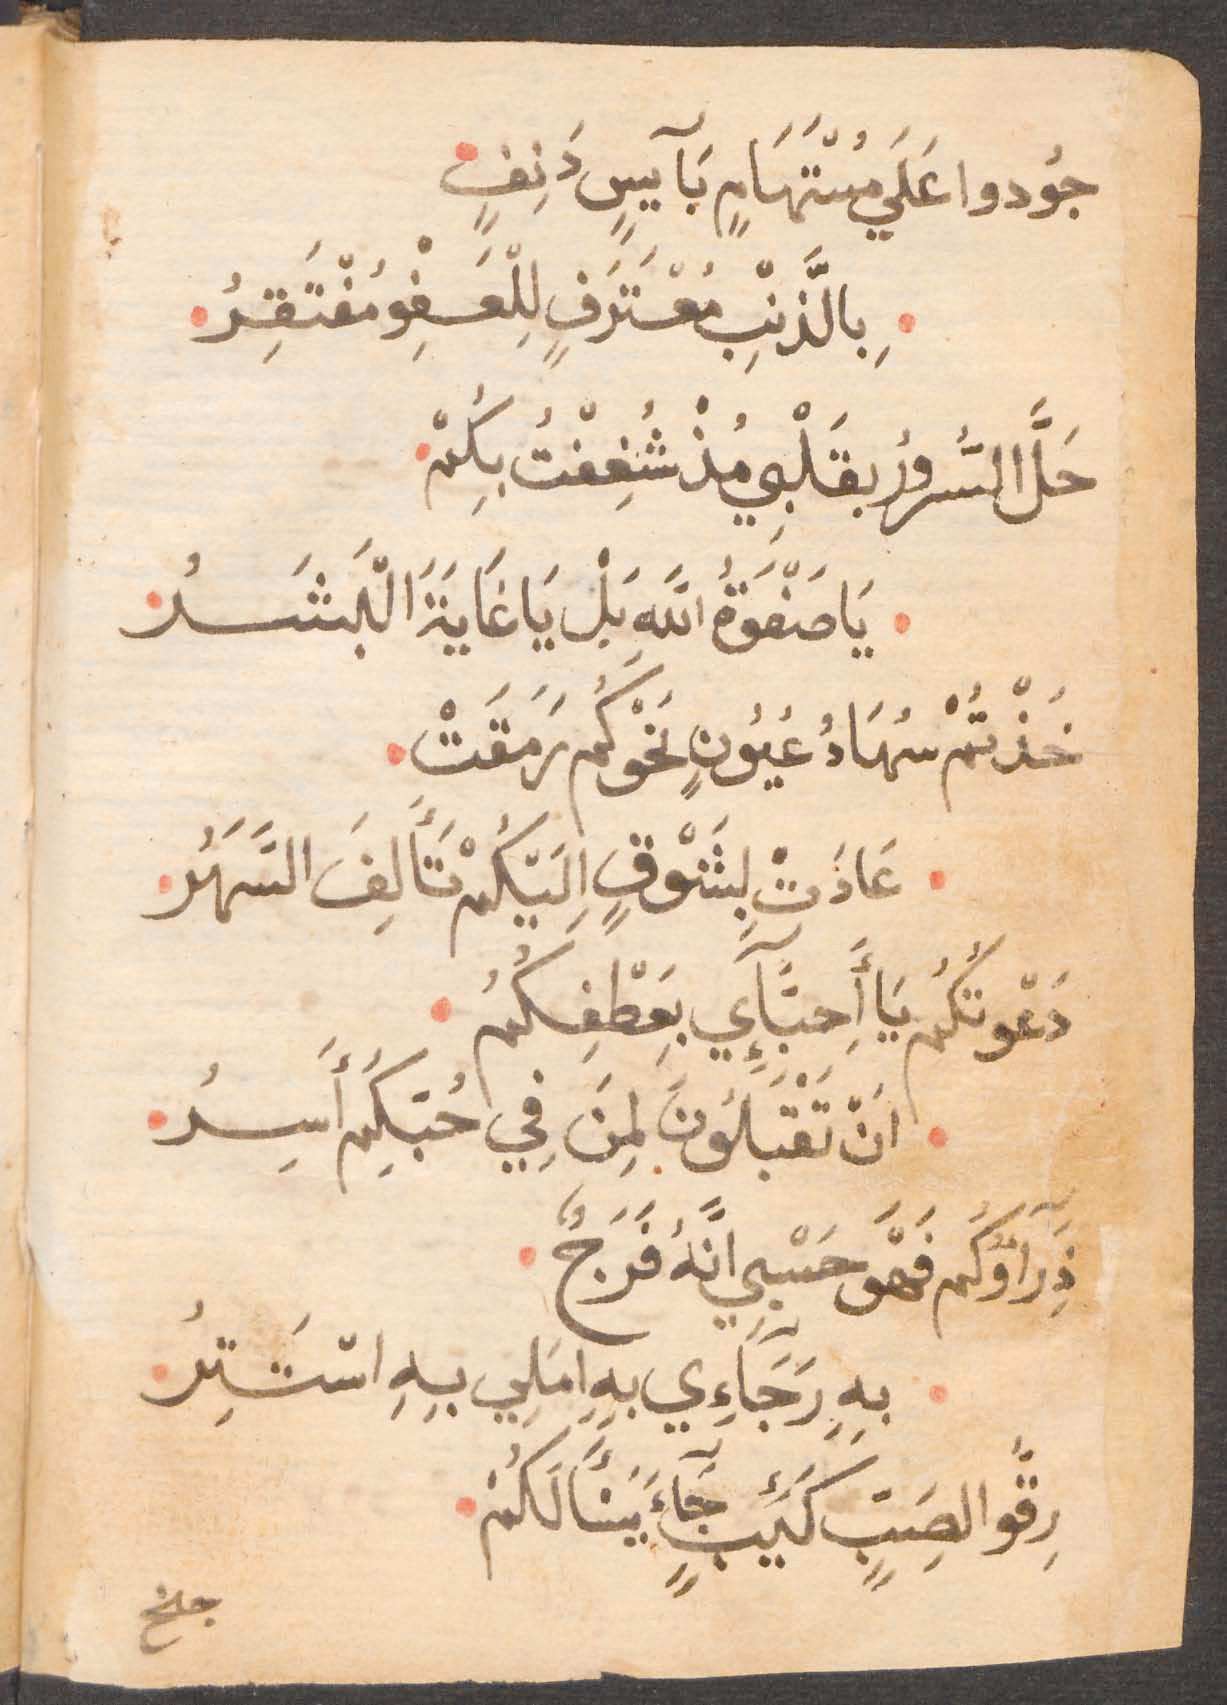 جُودوا عَلَي مُسْتَهَامٍ بَآيسٍ دَنِفٍ
بِالَّذنْبِ مُعْتَرَفٍ لِلْعَفْوِ مُفْتَقِرُ
حَلَّ السُّرورُ بقَلْبِي مُذْ شُغِفْتُ بكِمُ
يَا صَفْوَةُ اللهِ بَلْ يَا غَايَةَ الْبَشَرُ
خَذْتُمْ سُهَادُ عُيُونٍ نَحْوَكُم رَمَقَتْ
عَادَتْ بِشَوْقٍ اِلَيْكُمْ تَأَلِفَ السَّهَرُ
دَعْوتُكُم يَا أَحِبَّآءِي بِعَطْفِكُمُ
اَنْ تَقْبَلُونَ لِمَن فِي حُبّكُِم أَسِرُ
ذِرَآؤكُم فَهْوَ حَسْبِي اِنَّهُ فَرَجٌ
بهِ رَجَآءِي بهِ اَمَلِي بِهِ اسْتَتِرُ
رِقُّوا لصِبٍّ كَئَيبٍ جَآءَ يَسْأَلَكُمُ
جلخ